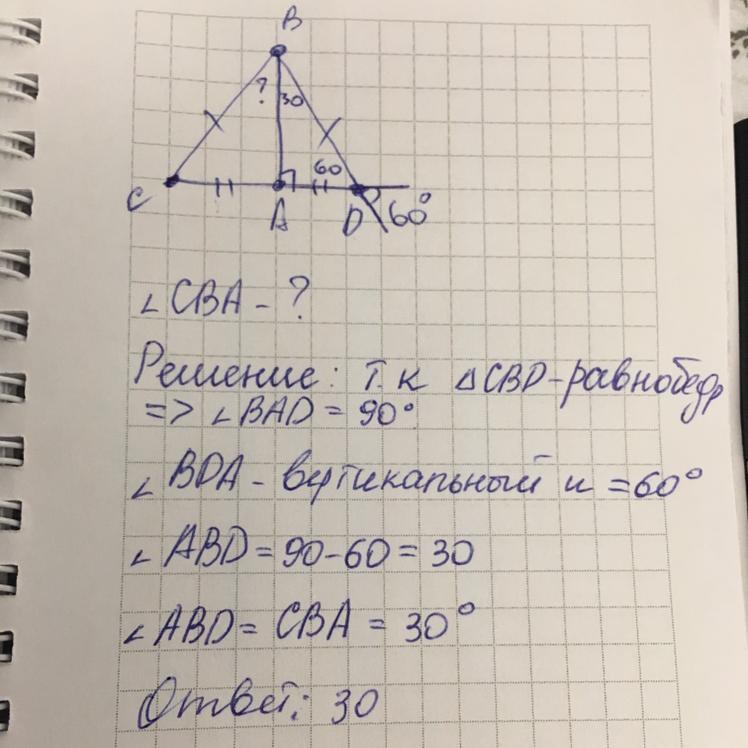 B
? 30
60
C A D 60°
∠CBA - ?
Решение: т.к △CBD-равнобедр
=> ∠BAD = 90°
∠BDA - вертикальный и =60°
∠ABD = 90-60 = 30
∠ABD = CBA = 30°
Ответ: 30